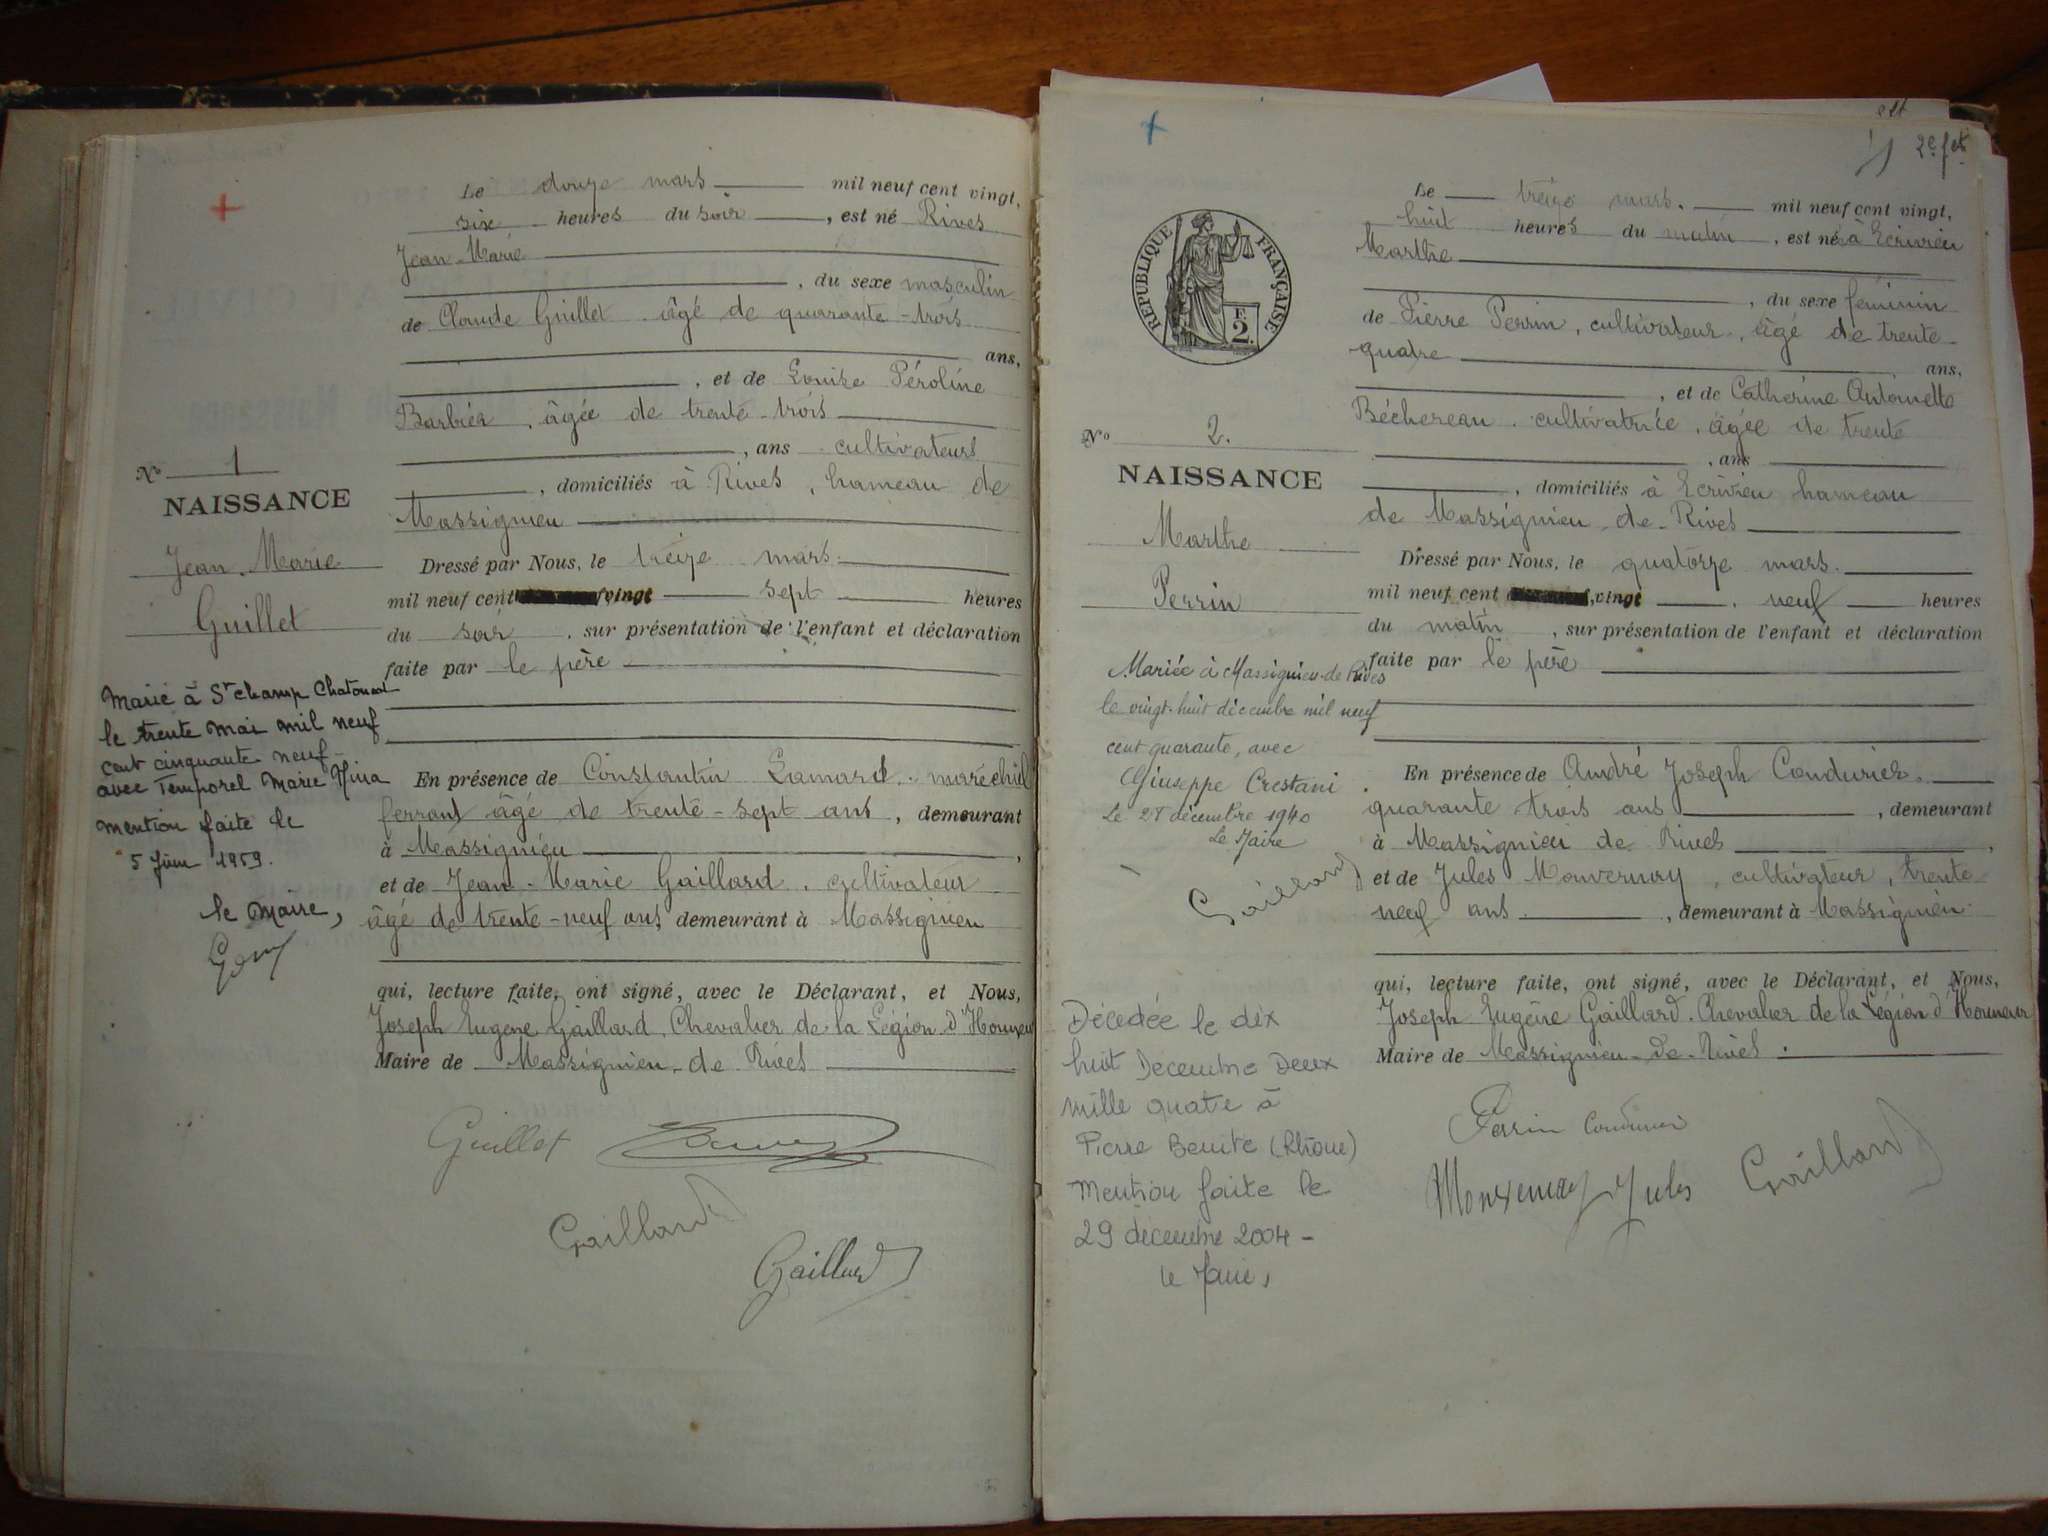 Le douze mars mil neuf cent vingt,
six heures du soir, est né Rives
Jean-Marie
, du sexe masculin
de Claude Guillet, âgé de quarante-trois
ans,
, et de Louise Péroline
Barbier, âgée de trente-trois
, ans cultivateurs
, domiciliés à Rives, hameau de
Massignieu
Dressé par Nous, le treize mars
mil neuf cent vingt sept heures
du soir, sur présentation de l'enfant et déclaration
faite par le père
En présence de Constantin Lamard, maréchal
ferrant âgé de trente-sept ans, demeurant
à Massignieu,
et de Jean-Marie Gaillard, cultivateur
âgé de trente-neuf ans, demeurant à Massignieu
qui, lecture faite, ont signé, avec le Déclarant, et Nous,
Joseph Eugène Gaillard, Chevalier de la Légion d'Honneur
Maire de Massignieu-de-Rives
Guillet
Gaillard
Gaillard
No 1
NAISSANCE
Jean-Marie
Guillet
Marié à St champ Chatonod
le trente mai mil neuf
cent cinquante neuf
avec Temporel Marie
mention faite le
5 Juin 1959.
le Maire,
2e ft
Le treize mars. mil neuf cent vingt,
huit heures du matin, est née à Ecrivieu
Marthe
, du sexe féminin
de Pierre Perrin, cultivateur, âgé de trente-
quatre
ans,
, et de Catherine Antoinette
Béchereau, cultivatrice, âgée de trente
, ans
, domiciliés à Ecrivieu hameau
de Massignieu-de-Rives
Dressé par Nous, le quatorze mars.
mil neuf cent vingt, neuf heures
du matin, sur présentation de l'enfant et déclaration
faite par le père
En présence de André Joseph Condurier.
quarante trois ans, demeurant
à Massignieu de Rives,
et de Jules Monvernay, cultivateur, trente
neuf ans, demeurant à Massignieu
qui, lecture faite, ont signé, avec le Déclarant, et Nous,
Joseph Eugène Gaillard, Chevalier de la Légion d'Honneur
Maire de Massignieu-de-Rives.
Perrin Condurier
Monvernay Jules Gaillard
RÉPUBLIQUE FRANÇAISE
E
2.
No 2.
NAISSANCE
Marthe
Perrin
Mariée à Massignieu-de-Rives
le vingt-huit décembre mil neuf
cent quarante, avec
Giuseppe Crestani.
Le 28 décembre 1940
Le Maire
Gaillard
Décédée le dix
huit Decembre Deux
mille quatre à
Pierre Benite (Rhône)
Mention faite le
29 decembre 2004-
le Maire,